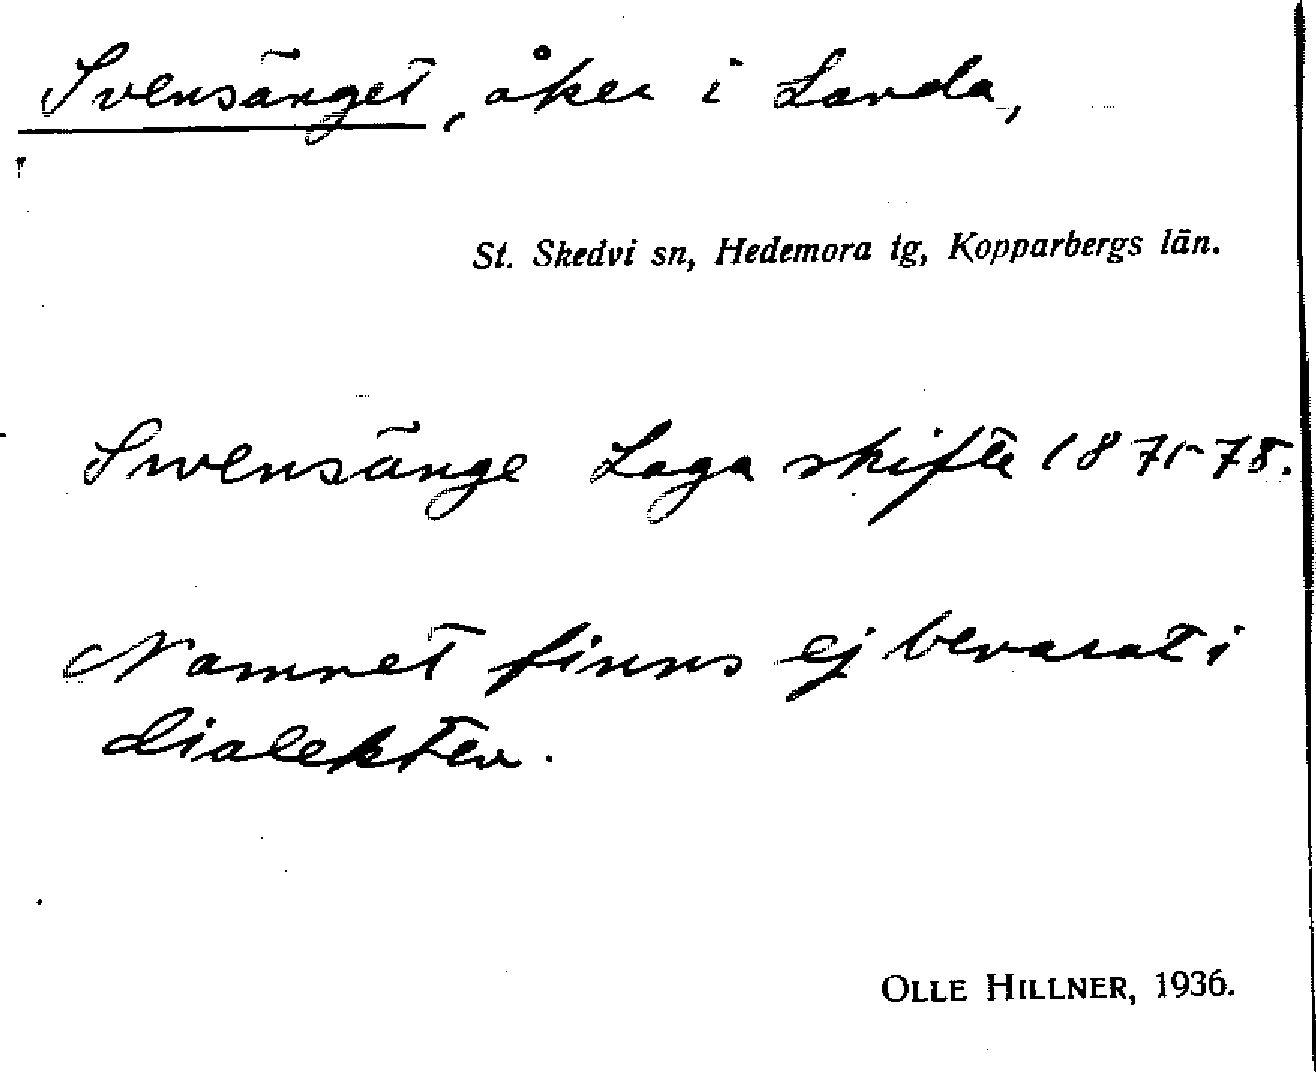 Svensänget, åker i Landa,
St. Skedvi sn, Hedemora tg, Kopparbergs län.
Swensänge Laga skifte 1871-78.
Namnet finns ej bevarat i
dialekten.
OLLE HILLNER, 1936.